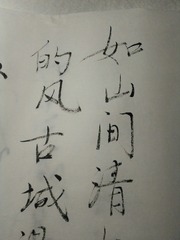 如山间清
的风古城